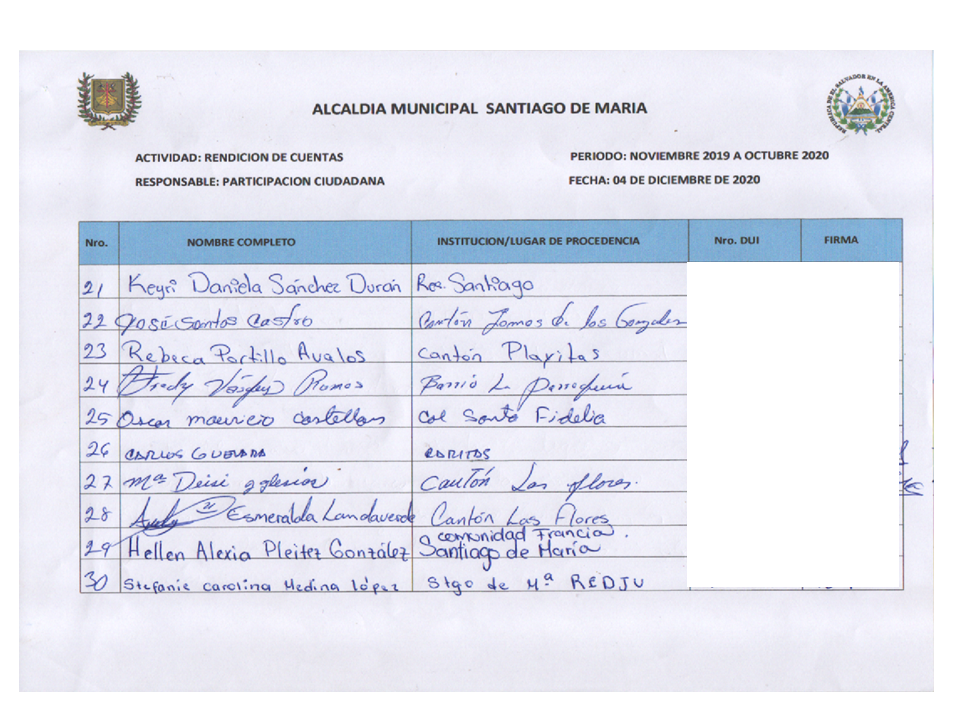 ALCALDIA MUNICIPAL SANTIAGO DE MARIA
REPUBLICA DE EL SALVADOR EN LA AMERICA CENTRAL
ACTIVIDAD: RENDICION DE CUENTAS PERIODO: NOVIEMBRE 2019 A OCTUBRE 2020
RESPONSABLE: PARTICIPACION CIUDADANA FECHA: 04 DE DICIEMBRE DE 2020
Nro. NOMBRE COMPLETO INSTITUCION/LUGAR DE PROCEDENCIA Nro. DUI FIRMA
21 Keyri Daniela Sánchez Durán Res. Santiago
22 José Santos Castro Cantón Lomas de los Gonzalez
23 Rebeca Portillo Avalos Cantón Playitas
24 Fredy Vásquez Ramos Barrio La Parroquia
25 Oscar mauricio castellon col Santa Fidelia
26 CARLOS GUEVARA CARITAS
27 Mª Deisi yglesias Cantón Las flores.
28 Esmeralda Landaverde Cantón Las Flores
comunidad Francia.
29 Hellen Alexia Pleitez González Santiago de María
30 Stefanie carolina Medina López Stgo de Mª REDJU